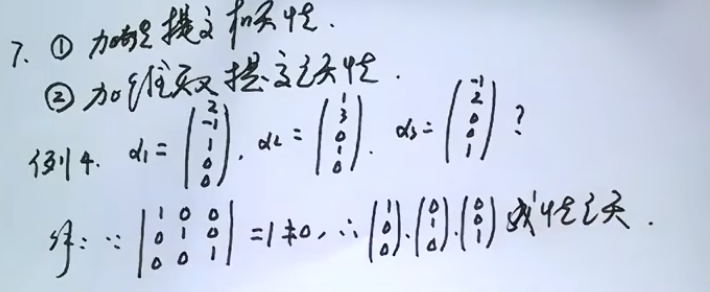 7. ① 加向量提高相关性.
② 加维数提高无关性.
例4. α₁ = (2 -1 1 0 0), α₂ = (1 3 0 1 0), α₃ = (-1 2 0 0 1) ?
解: ∵ |1 0 0; 0 1 0; 0 0 1| = 1 ≠ 0, ∴ (1 0 0), (0 1 0), (0 0 1) 线性无关.